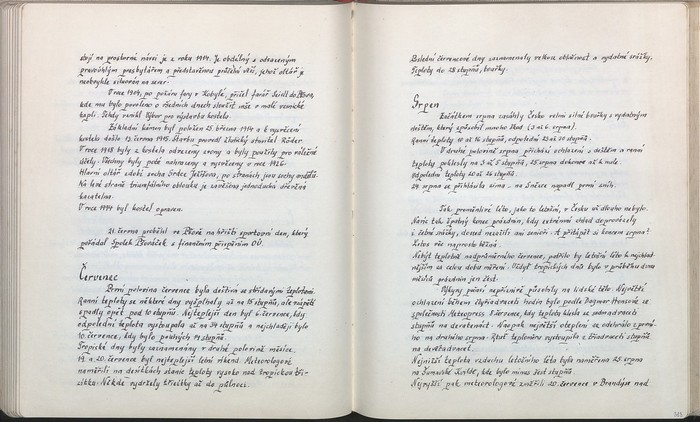 stojí na prostorné návsi je z roku 1914. Je obdélný s odsazeným
pravoúhlým presbytářem a představěnou průčelní věží, jehož oltář je
neobvykle situován na sever.
V roce 1904, po požáru fary v Kobylé, přišel farář Seidl do Pěvon,
kde mu bylo povoleno o všedních dnech sloužit mše v malé vesnické
kapli. Tehdy vznikl výbor pro výstavbu kostela.
Základní kámen byl položen 25. března 1914 a k vysvěcení
kostela došlo 13. června 1915. Stavbu provedl zlatický stavitel Röder.
V roce 1918 byly z kostela odvezeny zvony a byly použity pro válečné
účely. Všechny byly poté nahrazeny a vysvěceny v roce 1926.
Hlavní oltář zdobí socha Srdce Ježíšova, po stranách jsou sochy andělů.
Na levé straně triumfálního oblouku je zavěšena jednoduchá dřevěná
kazatelna.
V roce 1994 byl kostel opraven.
21. června proběhl ve na hřišti sportovní den, který
pořádal Spolek s finančním přispěním OÚ.
Červenec
První polovina července byla deštivá se střídavými teplotami.
Ranní teploty se některé dny vyšplhaly až na 15 stupňů, ale naopak
spadly opět pod 10 stupňů. Nejteplejší den byl 6. červenec, kdy
odpolední teplota vystoupala až na 34 stupňů a nejchladněji bylo
10. července, kdy bylo pouhých 14 stupňů.
Tropické dny byly zaznamenány v druhé polovině měsíce.
19. a 20. červenec byl nejteplejší letní víkend. Meteorologové
naměřili na desítkách stanic teploty vysoko nad tropickou tři-
cítku. Někde vydržely třicítky až do půlnoci.
Poslední červencové dny zaznamenaly velkou oblačnost a vydatné srážky,
teploty do 28 stupňů, bouřky.
Srpen
Začátkem srpna zasáhly Česko velmi silné bouřky s vydatným
deštěm, který způsobil mnoho škod (3. až 6. srpna).
Ranní teploty 10 až 16 stupňů, odpolední 25 až 30 stupňů.
V druhé polovině srpna přichází ochlazení s deštěm a ranní
teploty poklesly na 3 až 5 stupňů, 25. srpna dokonce až k nule.
Odpolední teploty 20 až 26 stupňů.
24. srpna se přihlásila zima - na Sněžce napadl první sníh.
Tak proměnlivé léto, jako to letošní, v Česku už dlouho nebylo.
Navíc tak špatný konec prázdnin, kdy extrémní chlad doprovázely
i četné srážky, dosud nezažili ani senioři. A přitápět si koncem srpna?
Letos věc naprosto běžná.
Nebýt teplotně nadprůměrného července, patřilo by letošní léto k nejchlad-
nějším za celou dobu měření. Vždyť tropických dnů bylo v průběhu dvou
měsíců prázdnin jen šest.
Výkyvy počasí nepříznivě působily na lidské tělo. Největší
ochlazení během čtyřiadvaceti hodin bylo podle Dagmar Honsové ze
společnosti Meteopress 8. července, kdy teplota klesla ze sedmadvaceti
stupňů na devatenáct. Naopak největší oteplení se odehrálo z první-
ho na druhého srpna. Rtuť teploměru vystoupila z třiadvaceti stupňů
na devětadvacet.
Nejnižší teplota vzduchu letošního léta byla naměřena 25. srpna
na Šumavské Kvildě, kde bylo minus šest stupňů.
Nejvyšší pak meteorologové změřili 20. července v Brandýse nad